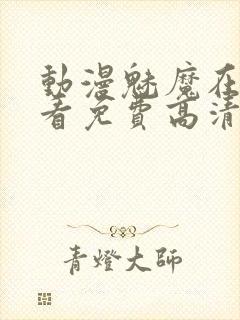 動漫魅魔在
看免費高清
青燈大師